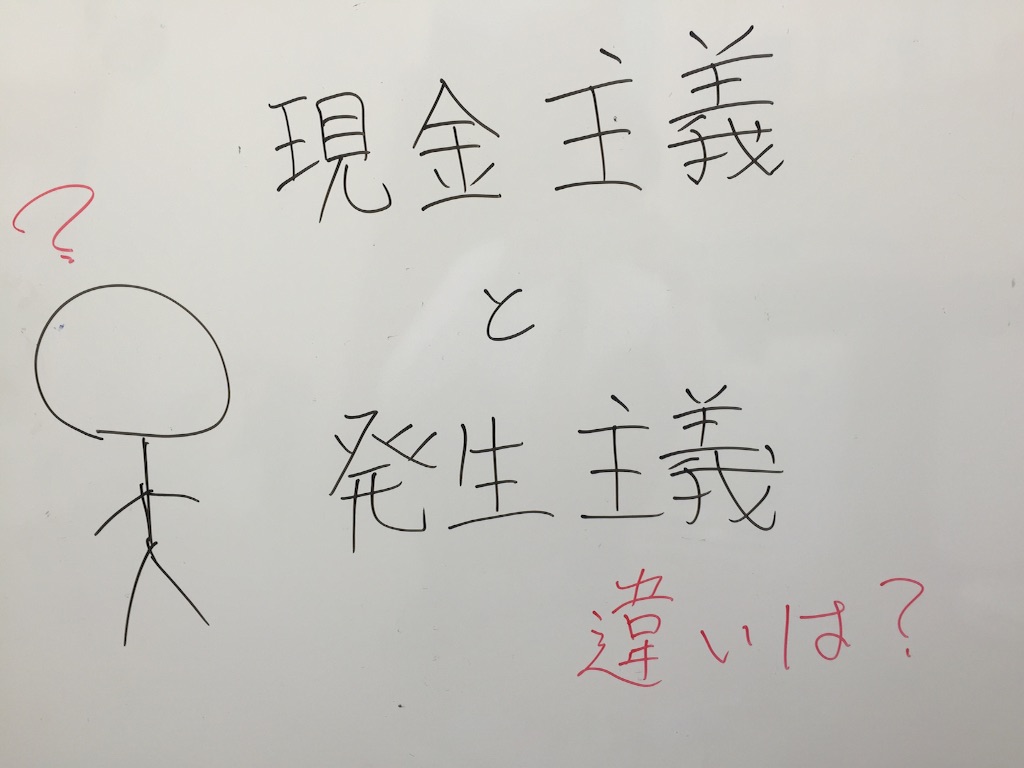 現金主義
?
と
発生主義
違いは?